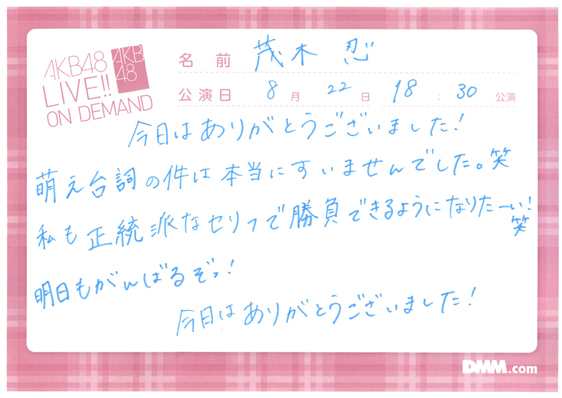 AKB48
LIVE!!
ON DEMAND
AKB
48
名前 茂木 忍
公演日 8月 22日 18:30 公演
今日はありがとうございました!
萌え台詞の件は本当にすいませんでした。笑
私も正統派なセリフで勝負できるようになりたーい!
笑
明日もがんばるぞっ!
今日はありがとうございました!
DMM.com